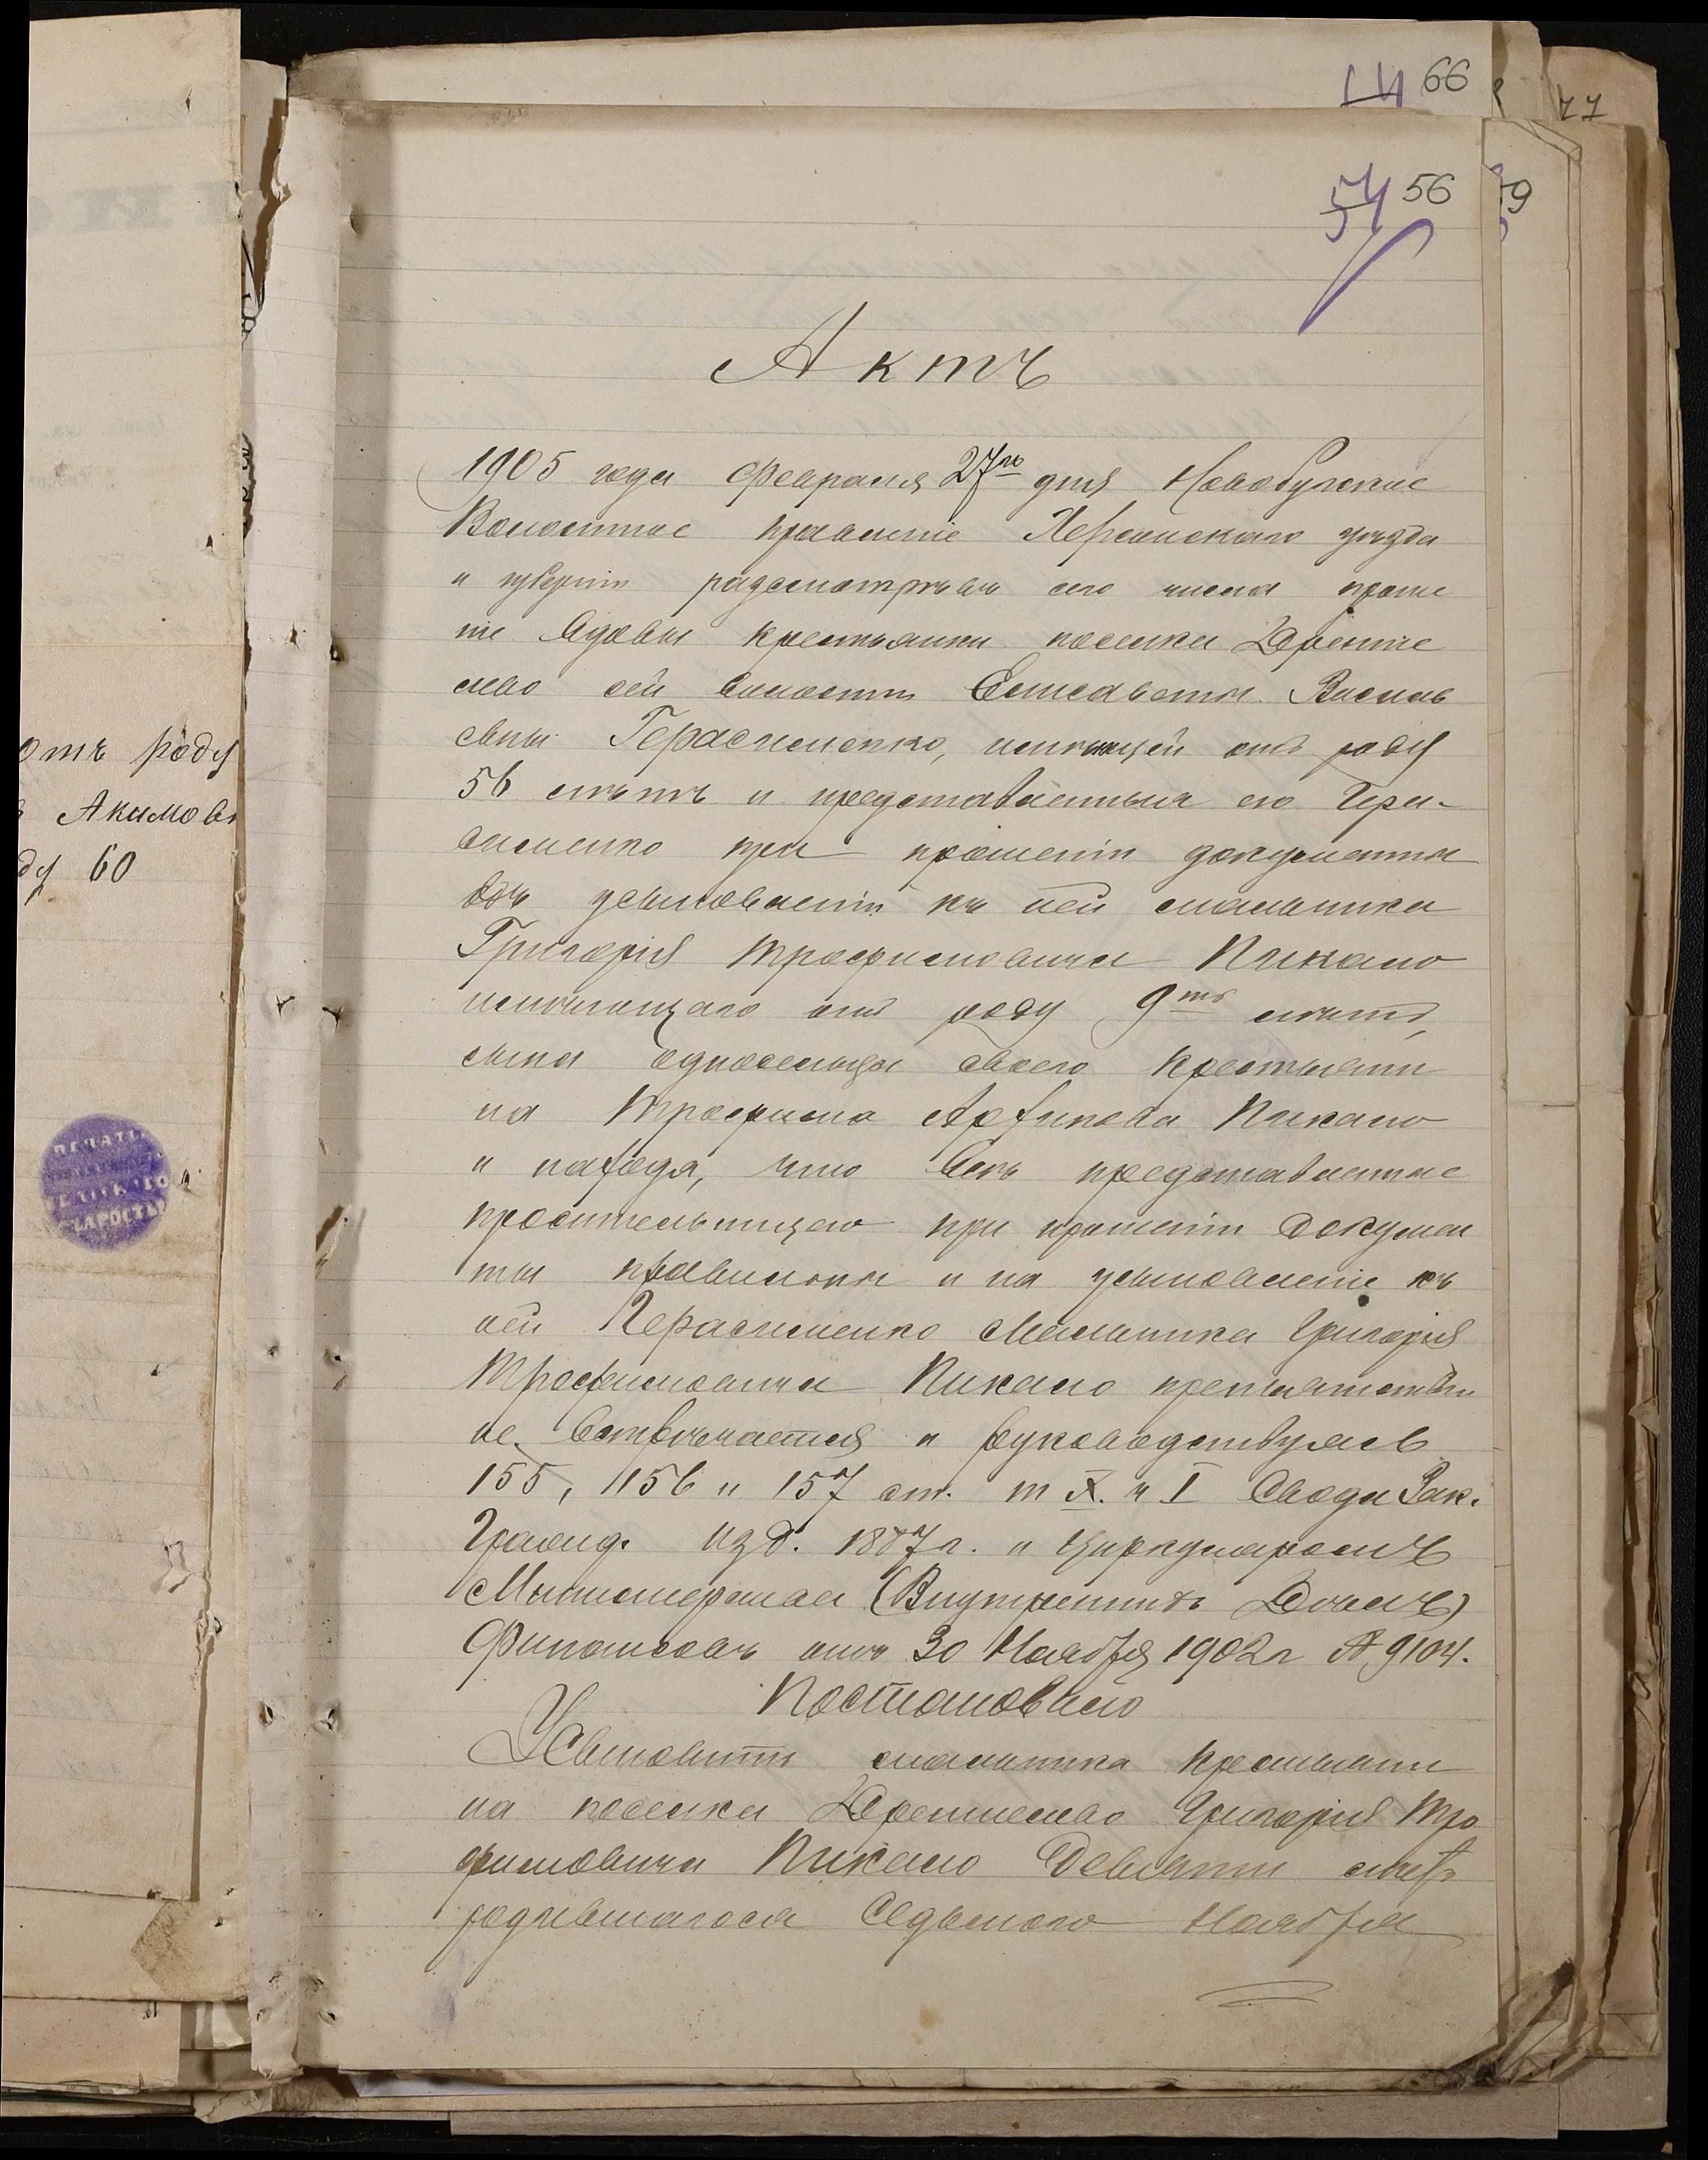 66
77
54 56
79
Актъ
1905 года Февраля 27го дня Новобугское
Волостное правленіе Херсонскаго уѣзда
и губерніи разсмотрѣвъ сего числа проше
ніе вдовы крестьянки поселка
сей волости Елисаветы Василь
евны Герасименко, имѣющей отъ роду
56 лѣтъ и представленныя ею Гера-
сименко при прошеніи документы
объ усыновленіи къ ней мальчика
Григорія Трофимовича Пикало
имѣющаго отъ роду 9ть лѣтъ,
сына односельца своего крестьяни
на Трофима Пикало
и находя, что всѣ представленные
просительницею при прошеніи докумен
ты правильны и на усыновленіе къ
ней Герасименко мальчика Григорія
Трофимовича Пикало препятствій
не встрѣчается и руководствуясь
155, 156 и 157 ст. т X. ч I Свода Зак.
Гражд. изд. 1887 г. и циркуляромъ
Министерства (Внутреннихъ Дѣлъ)
Финансовъ отъ 30 Ноября 1902 г № 9104.
Постановило
Усыновить мальчика крестьяни
на поселка Григорія Тро
фимовича Пикало девяти лѣтъ
родившагося седьмого Ноября
отъ роду
Акимов
ду 60
ПЕЧАТЬ
СЕЛЬСКАГО
СТАРОСТЫ